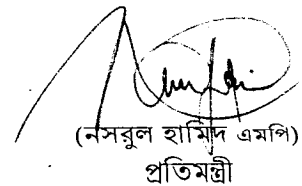 (নসরুল হামিদ এমপি)
প্রতিমন্ত্রী